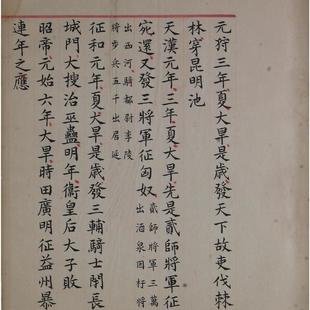 元狩三年夏大旱是歳發天下故吏伐棘
林穿昆明池
天漢元年三年夏大旱先是貳師將軍征
宛還又發三將軍征匈奴貳師將軍三萬出酒泉因杅將
出西河騎都尉李陵將步兵五千出居延
征和元年夏大旱是歳發三輔騎士閉長
城門大搜治巫蠱明年衞皇后大子敗
昭帝元始六年大旱時田廣明征益州暴
連年之應